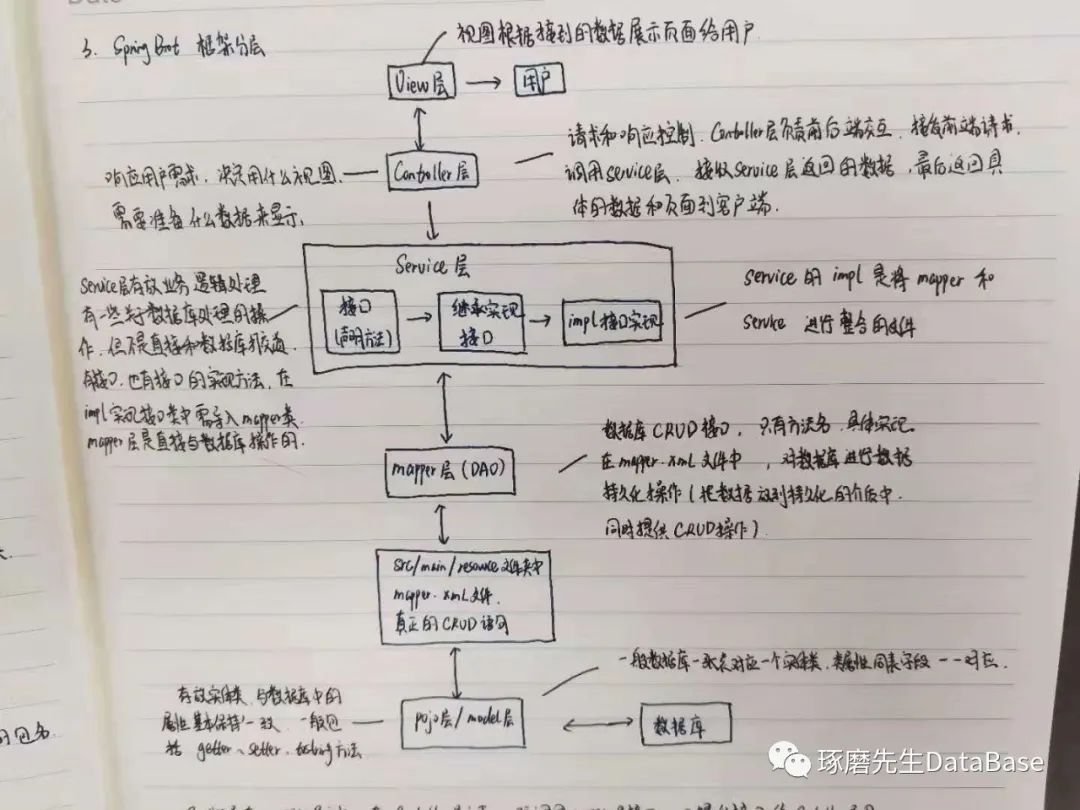 3. Spring Boot 框架分层
视图根据接到的数据展示页面给用户
View层
用户
请求和响应控制. Controller层负责前后端交互, 接受前端请求,
调用service层, 接收Service层返回的数据, 最后返回具
体的数据和页面到客户端.
Controller层
响应用户需求, 决定用什么视图,
需要准备什么数据来显示.
Service层
接口
(声明方法)
继承实现
接口
impl接口实现
service的impl是将mapper和
service 进行整合的文件
Service层存放业务逻辑处理
有一些关于数据库处理的操
作, 但不是直接和数据库打交道,
有接口, 也有接口的实现方法, 在
impl实现接口类中需导入mapper类,
mapper层是直接与数据库操作的.
mapper层(DAO)
数据库CRUD接口, 只有方法名, 具体实现
在mapper.xml文件中, 对数据库进行数据
持久化操作(把数据放到持久化的介质中,
同时提供CRUD操作)
src/main/resource文件夹中
mapper.xml文件,
真正的CRUD语句
一般数据库一张表对应一个实体类, 类属性同表字段一一对应.
存放实体类, 与数据库中的
属性基本保持一致, 一般包
括 getter、setter、tostring方法
pojo层/model层
数据库
的包名.
琢磨先生DataBase